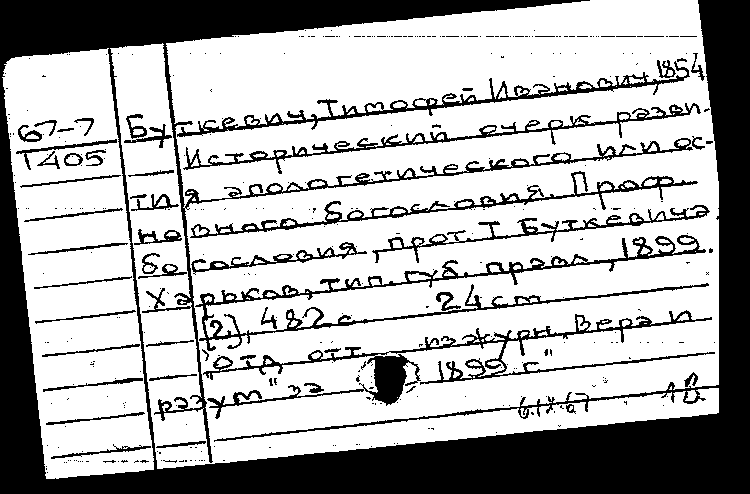 67-7
Т405
Буткевич, Тимофей Иванович, 1854
Исторический очерк разви-
тия апологетического или ос-
новного богословия. Проф.
богословия, прот. Т Буткевича.
Харьков, тип. губ. правл., 1899.
[2], 482 с. 24 cm
"Отд. отт. из журн. Вера и
разум" за 1899 г"
6.IX.67